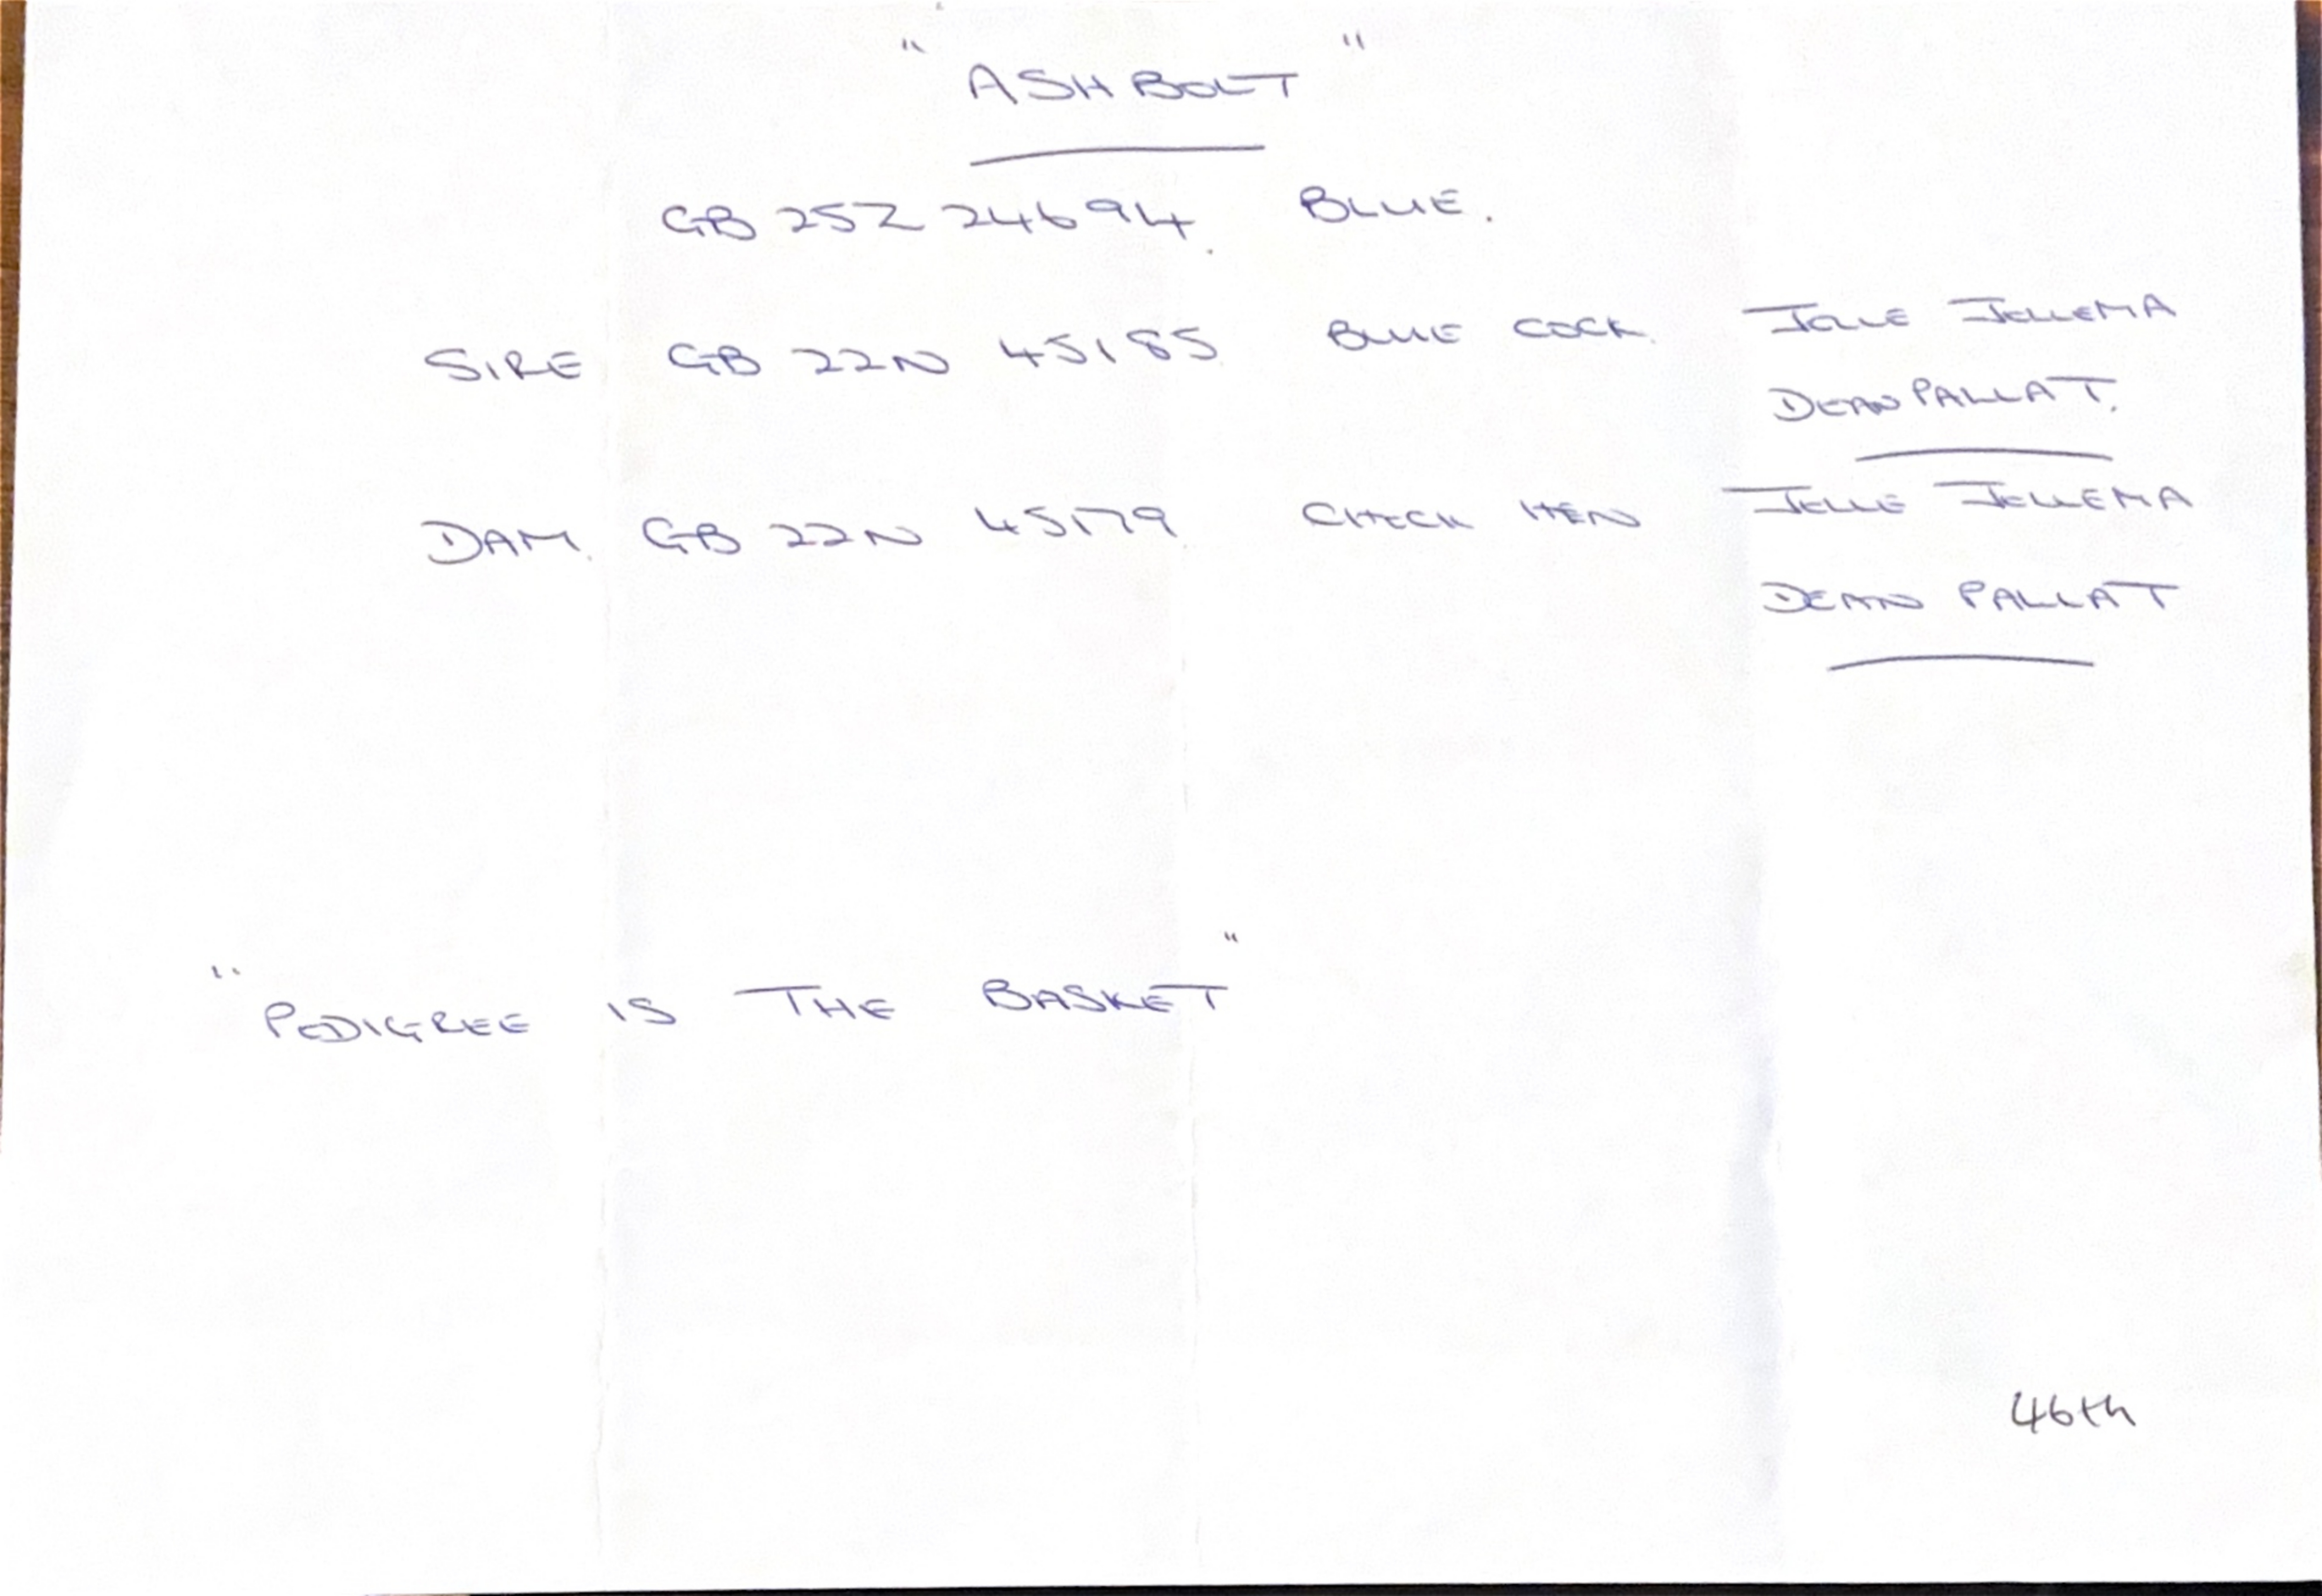 "ASHBOLT"
GB 25Z 24694. BLUE.
SIRE GB 22N 45185 BLUE COCK. JELLE JELLEMA
DEAN PALLAT.
DAM. GB 22N 45179. CHECK HEN JELLE JELLEMA
DEAN PALLAT
"PEDIGREE IS THE BASKET"
46th